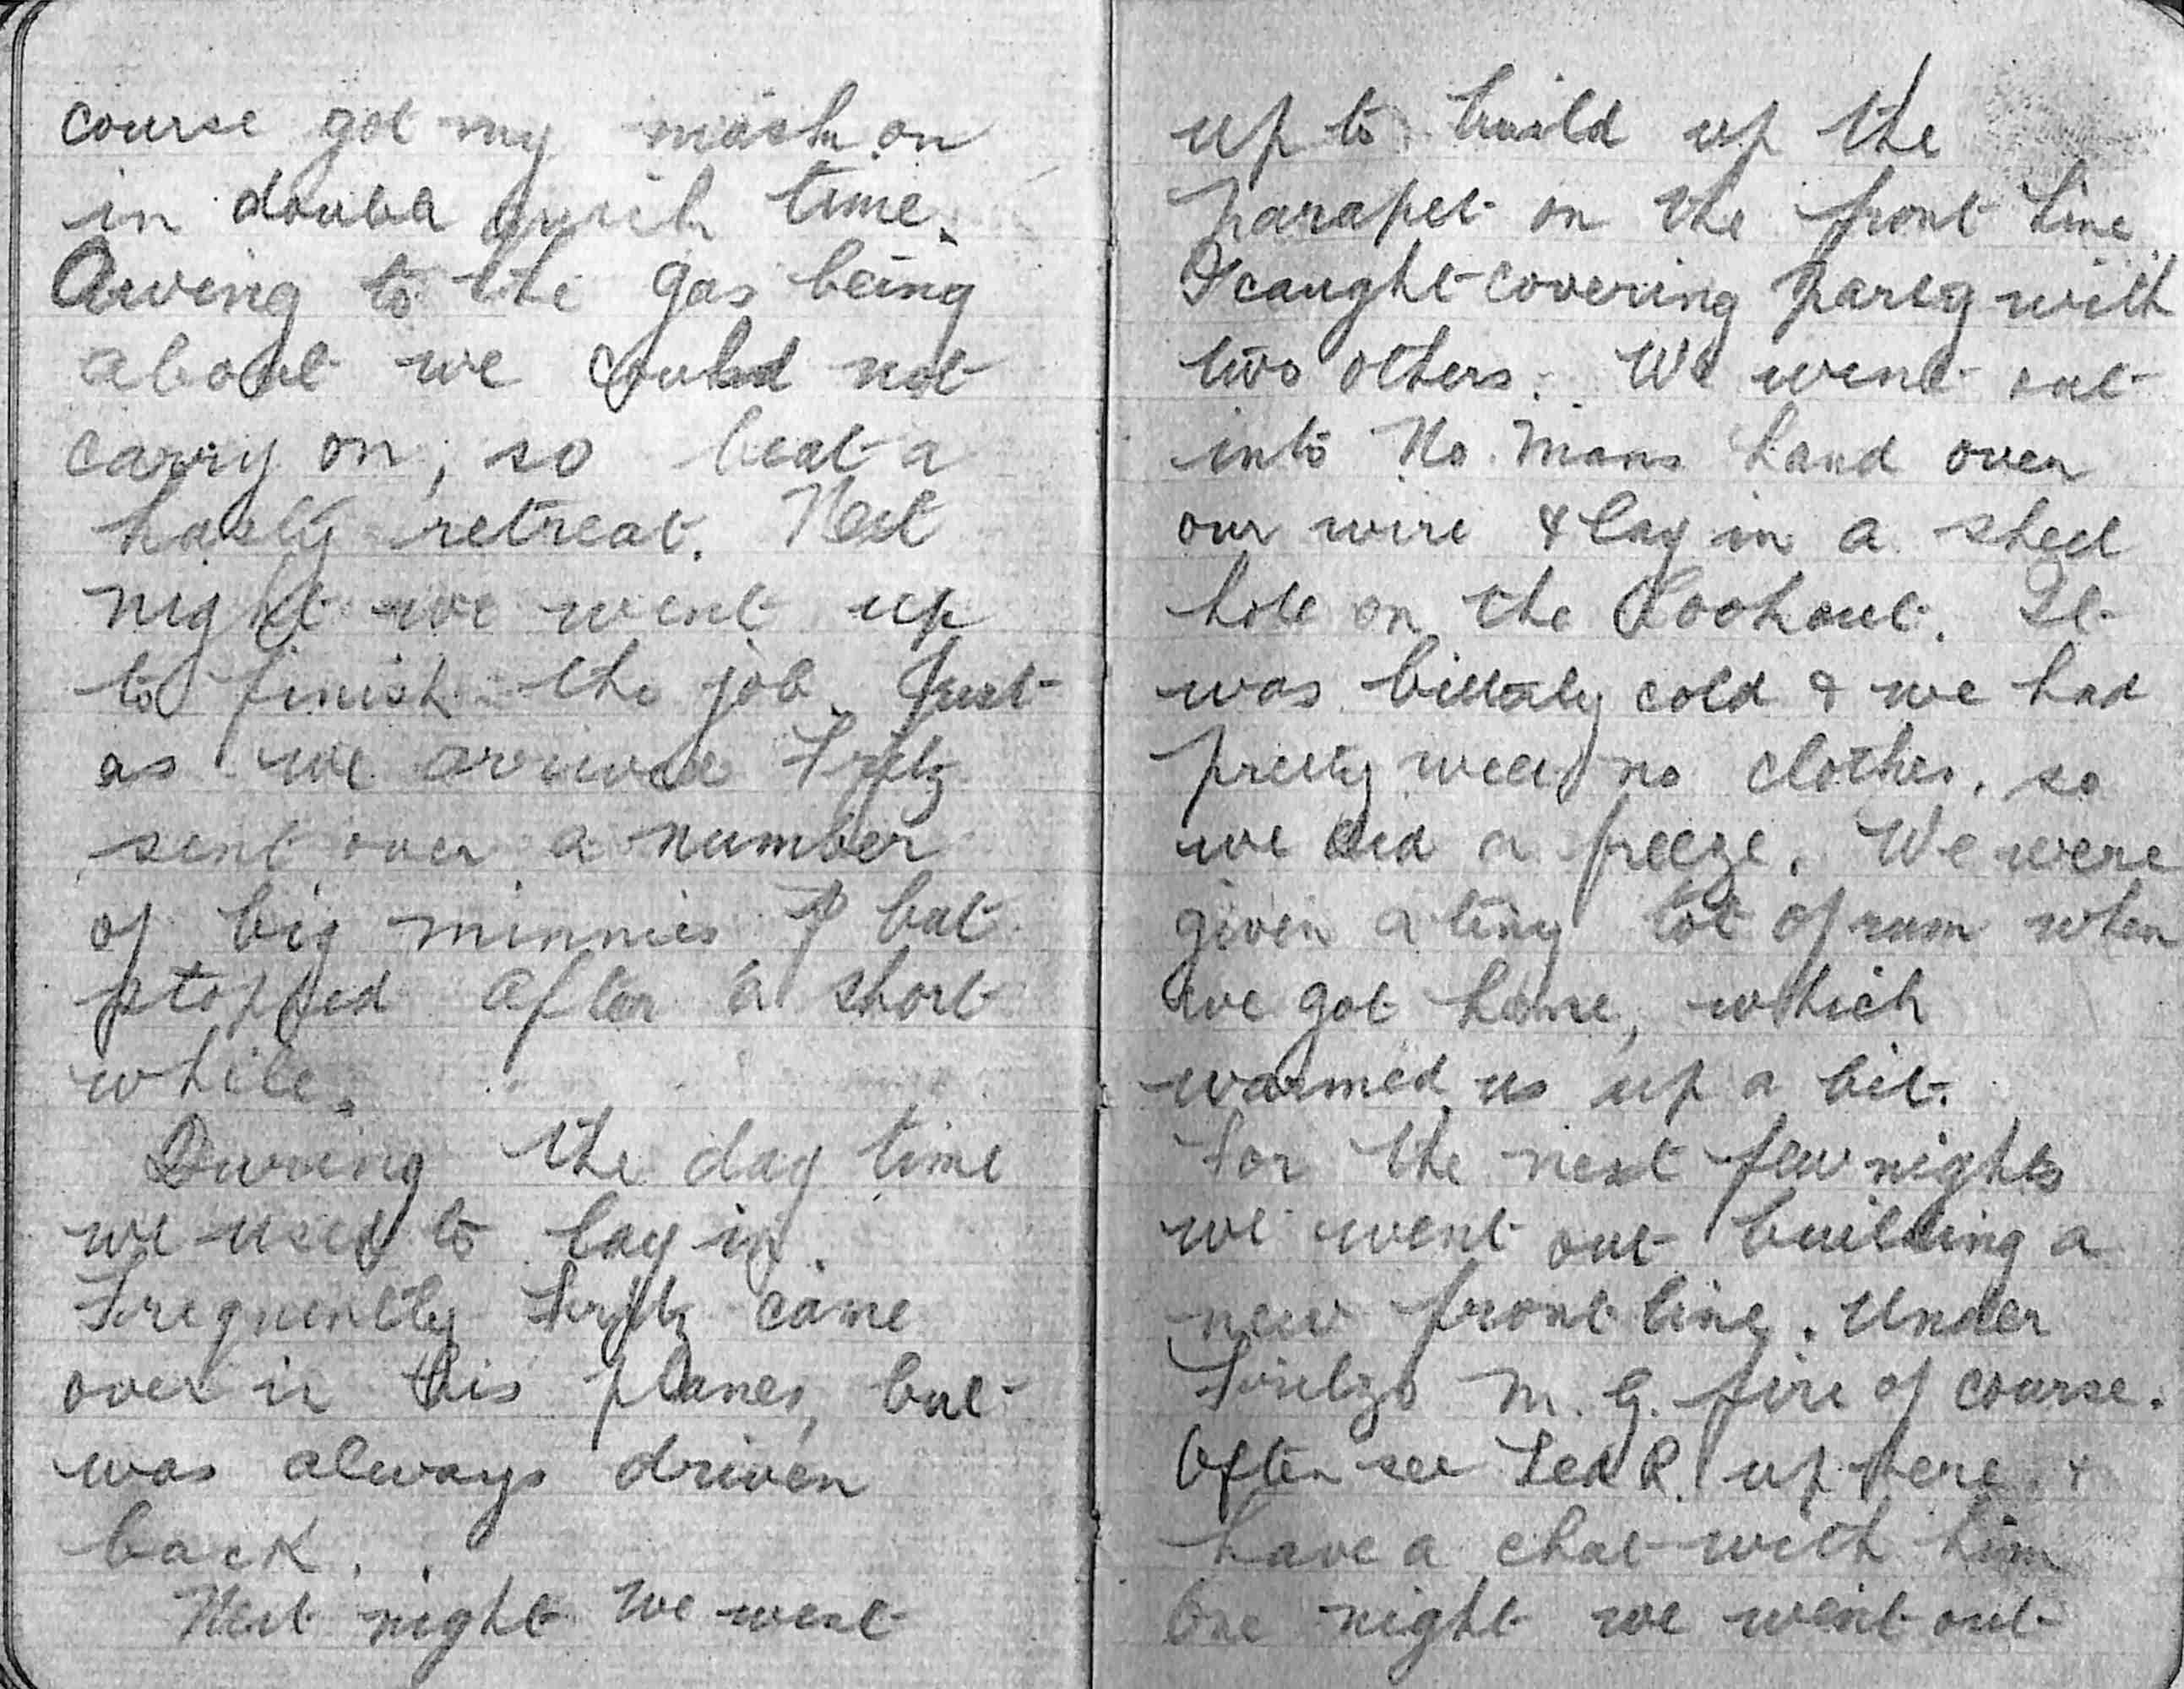 course got my mask on
in double quick time.
Owing to the gas being
about we could not
carry on, so beat a
hasty retreat. Next
night we went up
to finish the job. Just
as we arrived Fritz
sent over a number
of big minnies but
stopped after a short
while.
During the day time
we used to lay in.
Frequently Fritz came
over in his planes, but
was always driven
back.
Next night we went
up to build up the
parapet on the front line.
I caught covering party with
two others. We went out
into No Mans Land over
our wire & lay in a shell
hole on the lookout. It
was bitterly cold & we had
pretty well no clothes, so
we did a freeze. We were
given a tiny tot of rum when
we got home, which
warmed us up a bit.
For the next few nights
we went out building a
new front line. Under
Fritzs M. G. fire of course.
Often see Ted R. up here &
have a chat with him
One night we went out